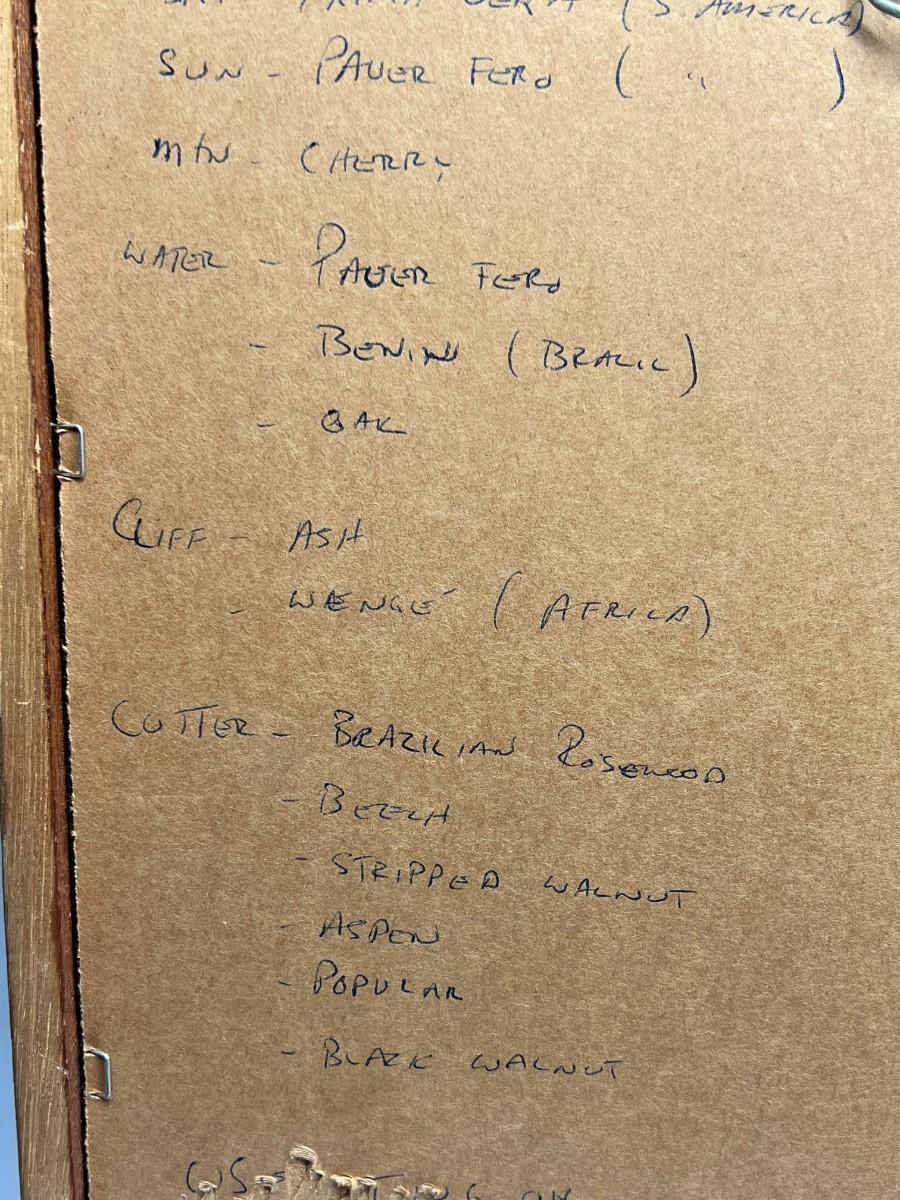 (S. AMERICA)
SUN - PAUER FERO ( " )
MTN - CHERRY
WATER - PAUER FERO
- BENIN (BRAZIL)
- OAK
CLIFF - ASH
- WENGÉ (AFRICA)
CUTTER - BRAZILIAN ROSEWOOD
- BEECH
- STRIPPED WALNUT
- ASPEN
- POPULAR
- BLACK WALNUT